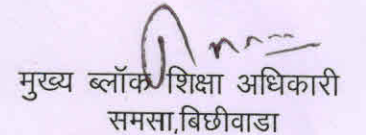 मुख्य ब्लॉक शिक्षा अधिकारी
समसा,बिछीवाडा